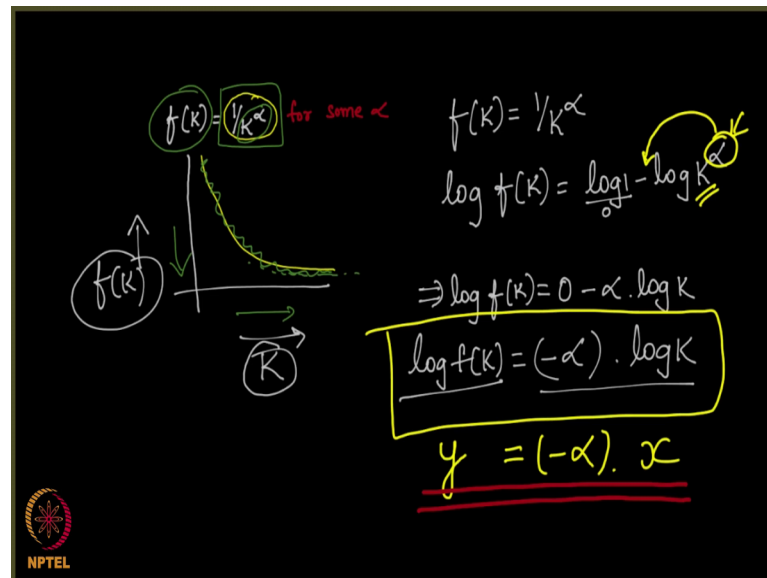 f(K) = 1/K^α for some α
f(K)
K
f(K) = 1/K^α
log f(K) = log 1 - log K^α
0
⇒ log f(K) = 0 - α . log K
log f(K) = (-α) . log K
y = (-α) . x
NPTEL